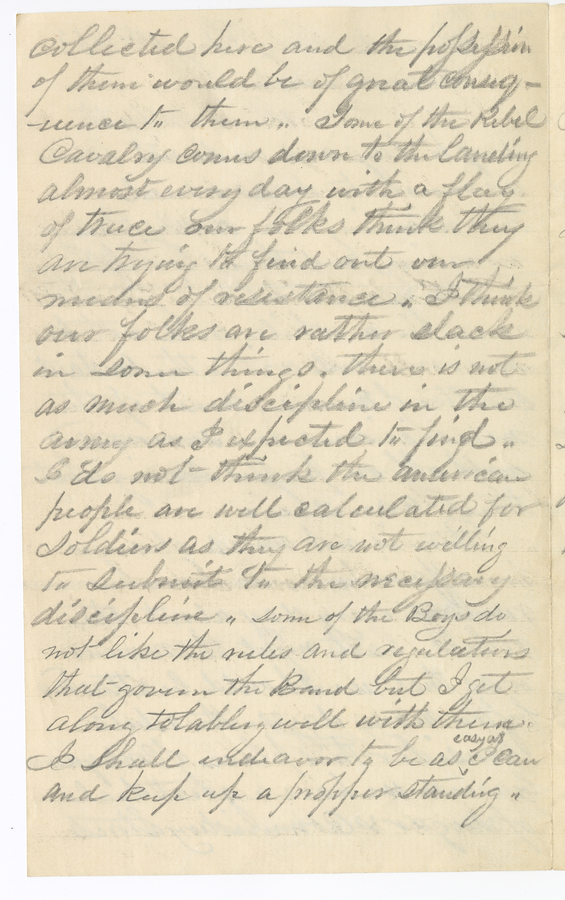 collected here and the possession
of them would be of great conseq-
-uence to them „ Some of the Rebel
Cavalry comes down to the landing
almost every day with a flag
of truce our folks think they
are trying to find out our
means of resistance „ I think
our folks are rather slack
in some things. there is not
as much discipline in the
army as I expected to find „
I do not think the american
people are well calculated for
Soldiers as they are not willing
to submit to the necessary
discipline „ some of the Boys do
not like the rules and regulations
that govern the Band but I get
along tolably well with them.
I shall endeavor to be as easy as I can
and keep up a propper standing „